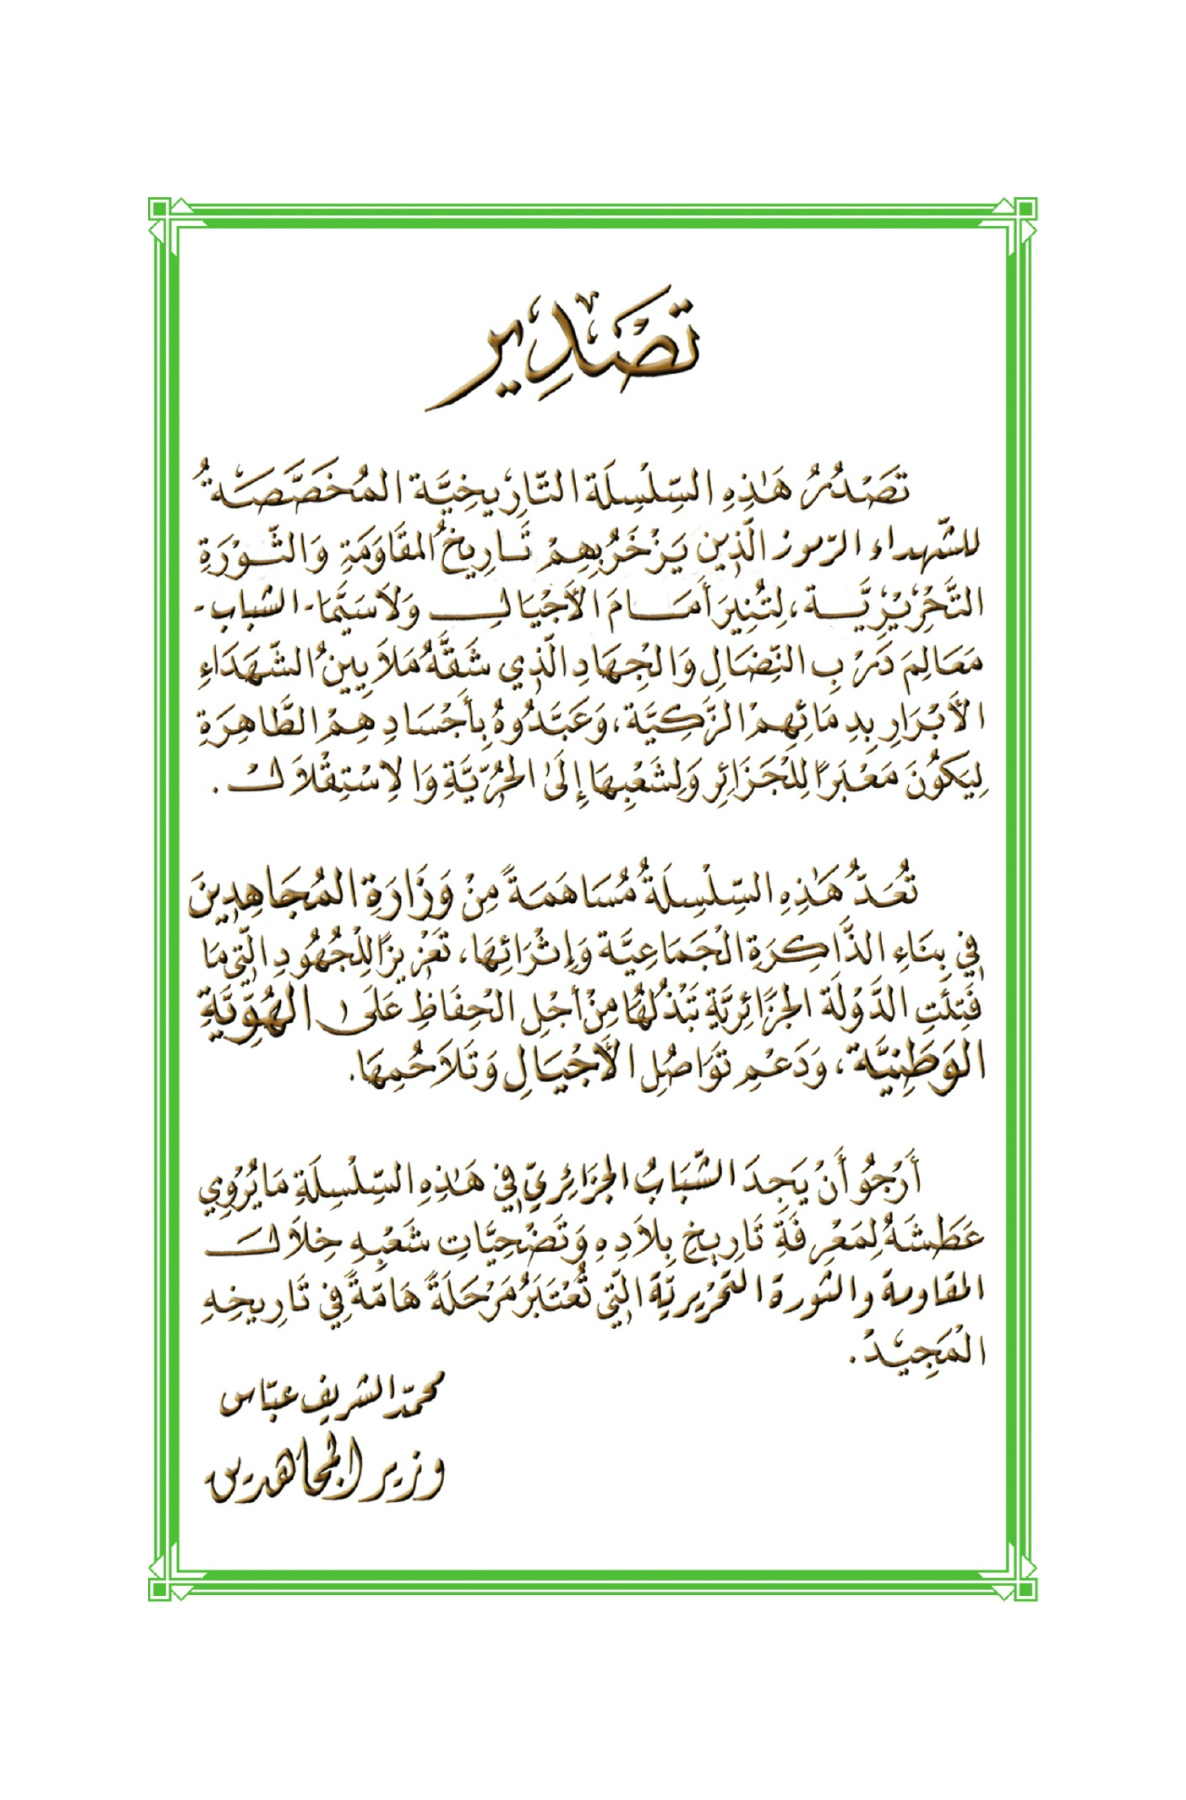 تَصْدِير
تَصْدُرُ هَذِهِ السِّلْسِلَة التَّارِيخِيَّة المُخَصَّصَةُ
للشّهداء الرّموز الّذِين يَزْخَرُ بِهِمْ تَارِيخُ المقَاوَمَةِ وَالثَّوْرَةِ
التَّحْرِيْرِيَّة، لِتُنِيرَ أَمَامَ الأَجْيَالِ وَلاَسَيَّمَا- الشبابِ-
مَعَالِمَ دَرْبِ النِّضَالِ وَالْجِهَادِ الّذِي شَقَّهُ مَلاَيِينُ الشُّهَدَاءِ
الأَبْرَارِ بِدِمَائِهِمْ الزَّكِيَّة، وَعَبَّدُوهُ بِأَجْسَادِهِمْ الطَّاهِرَةِ
لِيَكُونَ مَعْبَرًا لِلْجَزَائِرِ وَلِشَعْبِهَا إِلَىٰ الحُرِّيَّةِ وَالاِسْتِقْلاَلْ.
تُعَدُّ هَذِهِ السِّلْسِلَةُ مُسَاهَمَةً مِنْ وَزَارَةِ المُجَاهِدِينَ
فِي بِنَاءِ الذَّاكِرَةِ الْجَمَاعِيَّة وَإِثْرَائِهَا، تَعْزِيزًا لِلْجُهُودِ الَّتِي مَا
فَتِئَتِ الدَّوْلَة الجَزَائِرِيَّةِ تَبْذُلُهَا مِنْ أَجْلِ الْحِفَاظِ عَلَى الهُوِيَّةِ
الوَطَنِيَّة، وَدَعْمِ تَوَاصُلِ الأَجْيَالِ وَتَلاَحُمِهَا.
أَرْجُو أَنْ يَجِدَ الشَّبَابُ الجَزَائِرِيّ فِي هَذِهِ السِّلْسِلَةِ مَا يُرْوِي
عَطَشَهُ لِمَعْرِفَةِ تَارِيخِ بِلاَدِهِ وَتَضْحِيَّاتِ شَعْبِهِ خِلاَلَ
المقَاومة والثَورة التَحْرِيرِيَّة الَّتِي تُعْتَبَرُ مَرْحَلَةً هَامَّةً فِي تَارِيخِهِ
الْمَجِيْدْ.
محمّد الشريف عبّاس
وزير المجاهدين